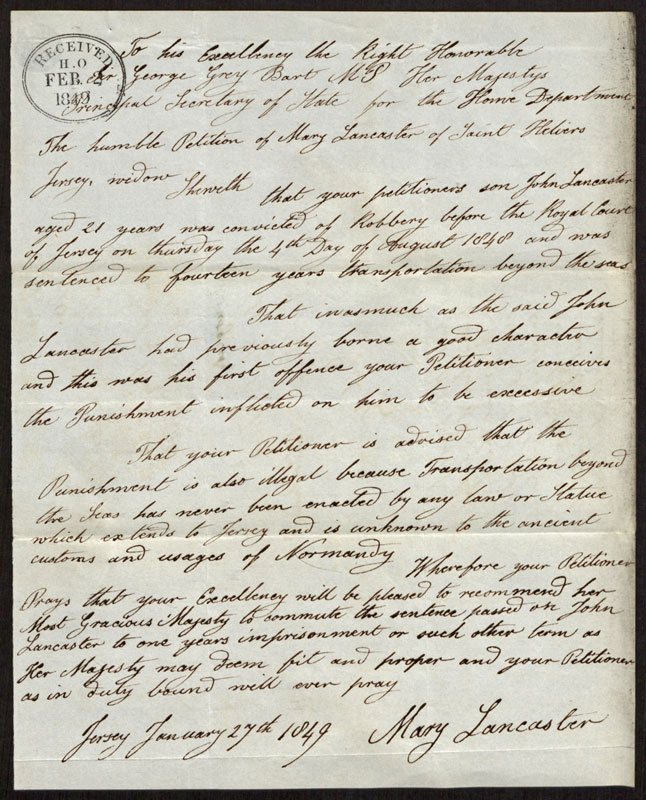 RECEIVED
H.O
FEB. 2
1849
To his Excellency the Right Honorable
Sir George Grey Bart MP Her Majestys
Principal Secretary of State for the Home Department
The humble Petition of Mary Lancaster of Saint Heliers
Jersey, widow
Sheweth that your petitioners son John Lancaster
aged 21 years was convicted of Robbery before the Royal Court
of Jersey on thursday the 4th Day of August 1848 and was
sentenced to fourteen years transportation beyond the seas
That inasmuch as the said John
Lancaster had previously borne a good character
and this was his first offence your Petitioner conceives
the Punishment inflicted on him to be excessive
That your Petitioner is advised that the
Punishment is also illegal because Transportation beyond
the Seas has never been enacted by any law or Statue
which extends to Jersey and is unknown to the ancient
customs and usages of Normandy
Wherefore your Petitioner
Prays that your Excellency will be pleased to recommend her
Most Gracious Majesty to commute the sentence passed on John
Lancaster to one years imprisonment or such other term as
Her Majesty may deem fit and proper and your Petitioner
as in duty bound will ever pray
Jersey January 27th 1849 Mary Lancaster